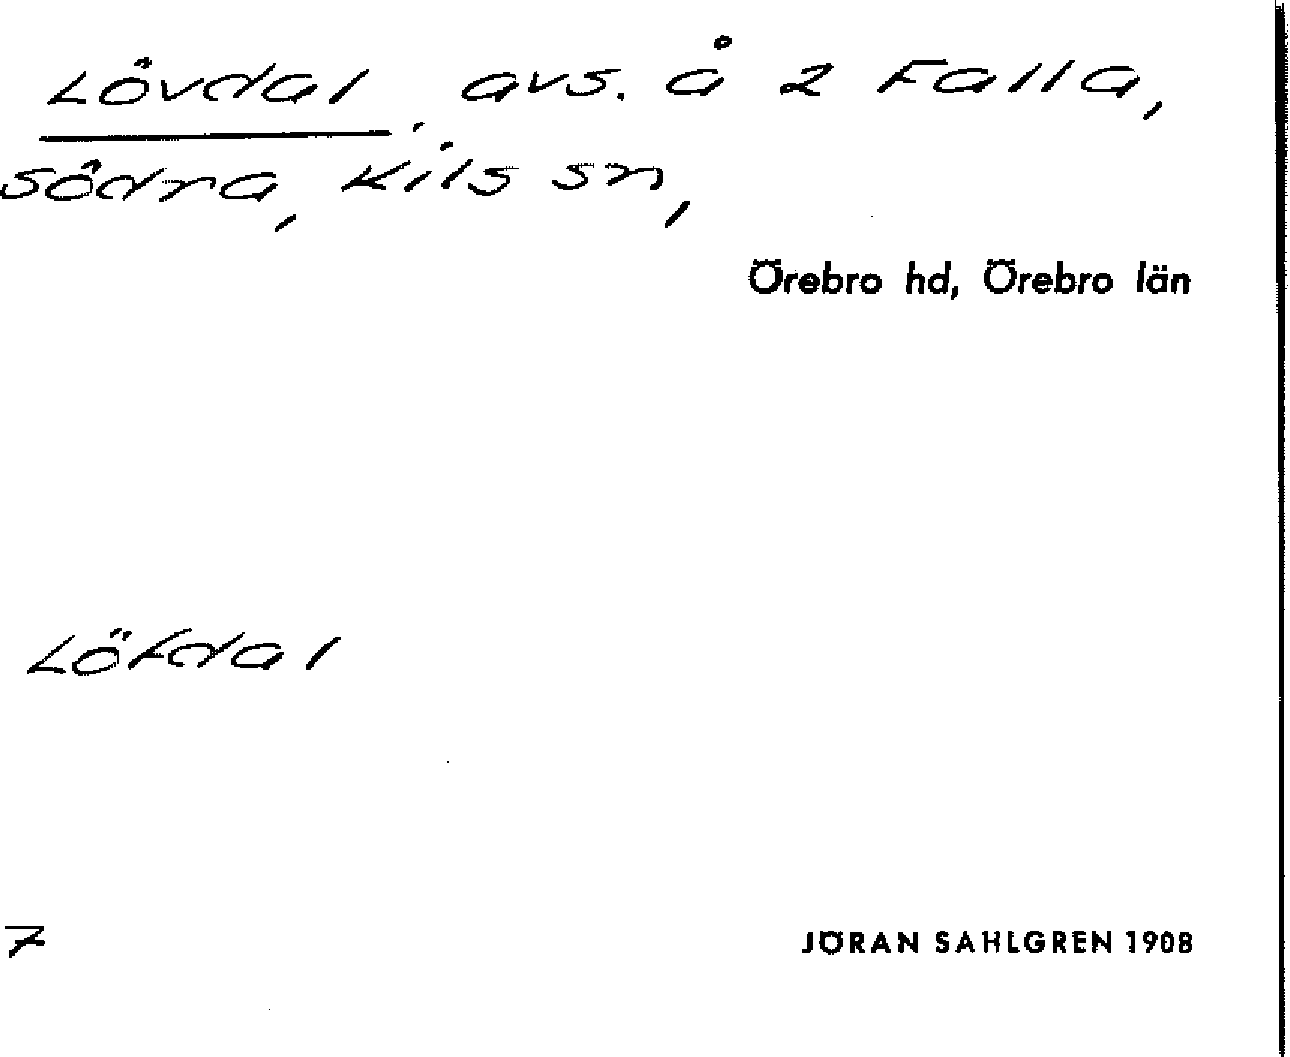 Lövdal, avs. å 2 Falla,
Södra, Kils sn,
Örebro hd, Örebro län
Löfdal
7
JÖRAN SAHLGREN 1908